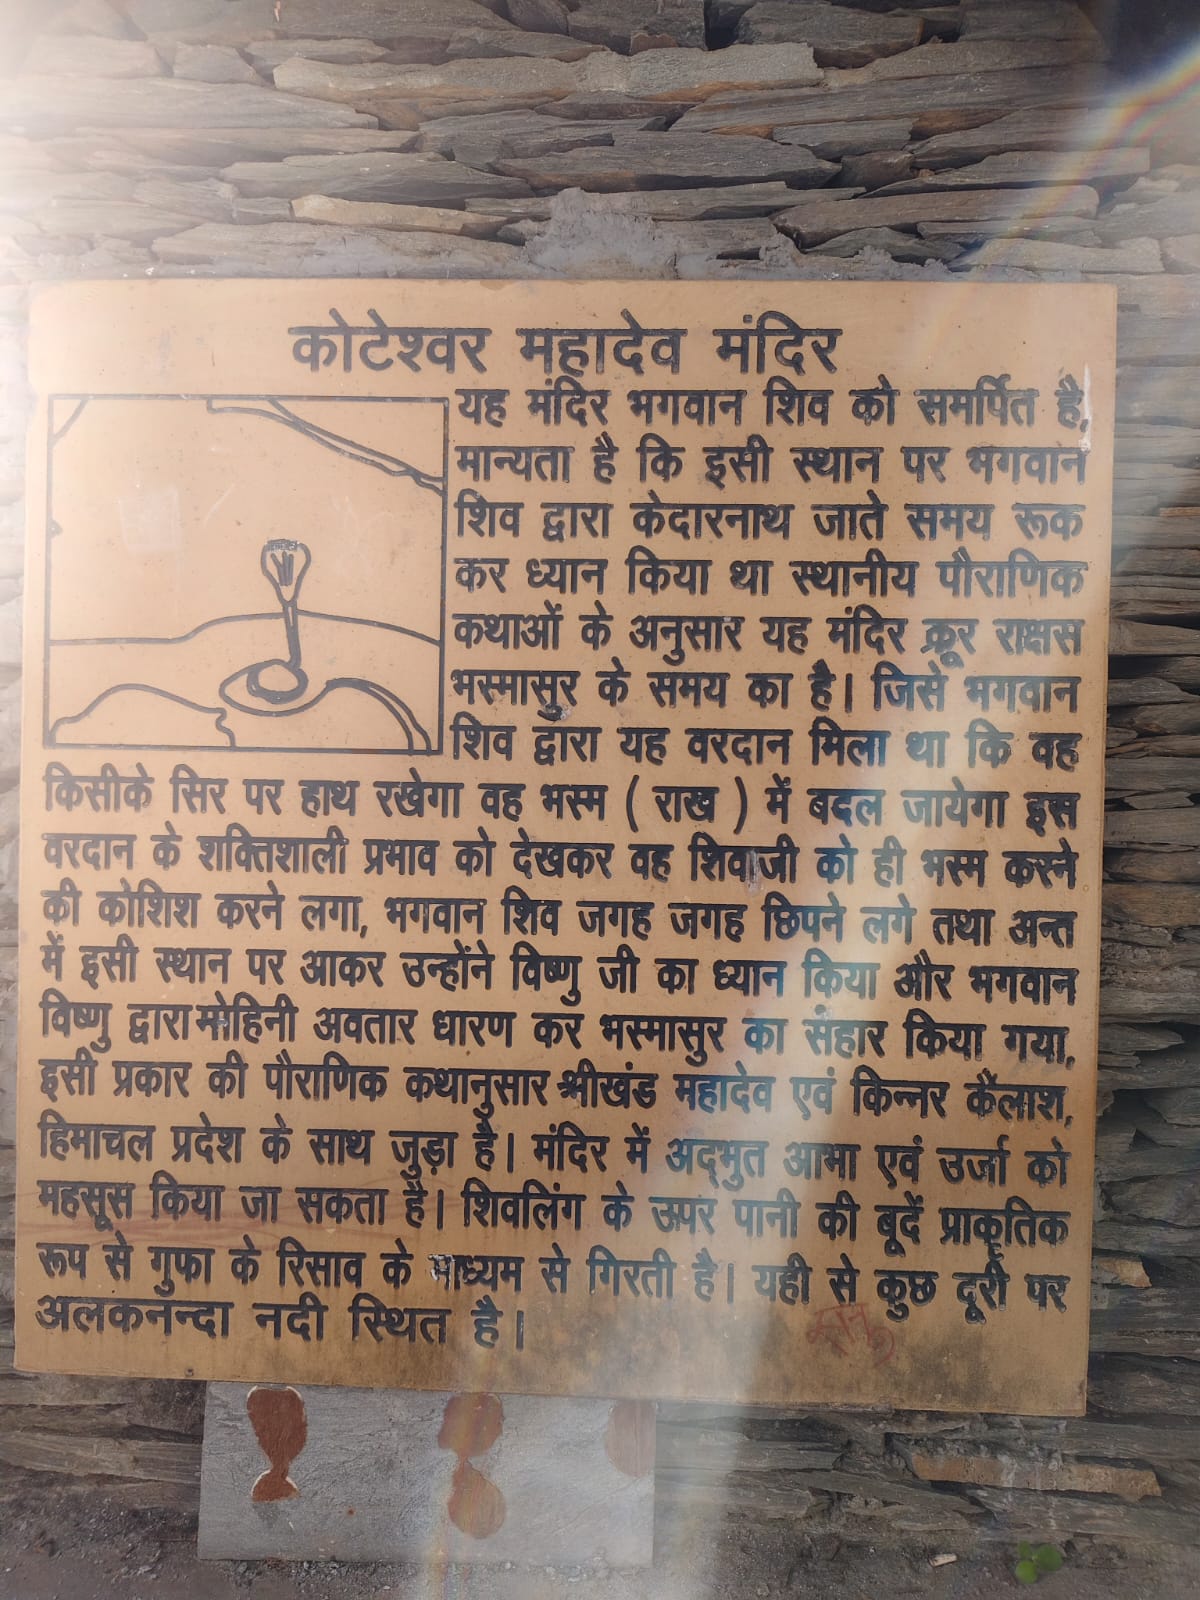 कोटेश्वर महादेव मंदिर
यह मंदिर भगवान शिव को समर्पित है,
मान्यता है कि इसी स्थान पर भगवान
शिव द्वारा केदारनाथ जाते समय रूक
कर ध्यान किया था स्थानीय पौराणिक
कथाओं के अनुसार यह मंदिर क्रूर राक्षस
भस्मासुर के समय का है। जिसे भगवान
शिव द्वारा यह वरदान मिला था कि वह
किसीके सिर पर हाथ रखेगा वह भस्म ( राख ) में बदल जायेगा इस
वरदान के शक्तिशाली प्रभाव को देखकर वह शिवाजी को ही भस्म करने
की कोशिश करने लगा, भगवान शिव जगह जगह छिपने लगे तथा अन्त
में इसी स्थान पर आकर उन्होंने विष्णु जी का ध्यान किया और भगवान
विष्णु द्वारा मोहिनी अवतार धारण कर भस्मासुर का संहार किया गया,
इसी प्रकार की पौराणिक कथानुसार श्रीखंड महादेव एवं किन्नर कैलाश,
हिमाचल प्रदेश के साथ जुड़ा है। मंदिर में अद्भुत आभा एवं उर्जा को
महसूस किया जा सकता है। शिवलिंग के उपर पानी की बूदें प्राकृतिक
रूप से गुफा के रिसाव के माध्यम से गिरती है। यही से कुछ दूरी पर
अलकनन्दा नदी स्थित है।